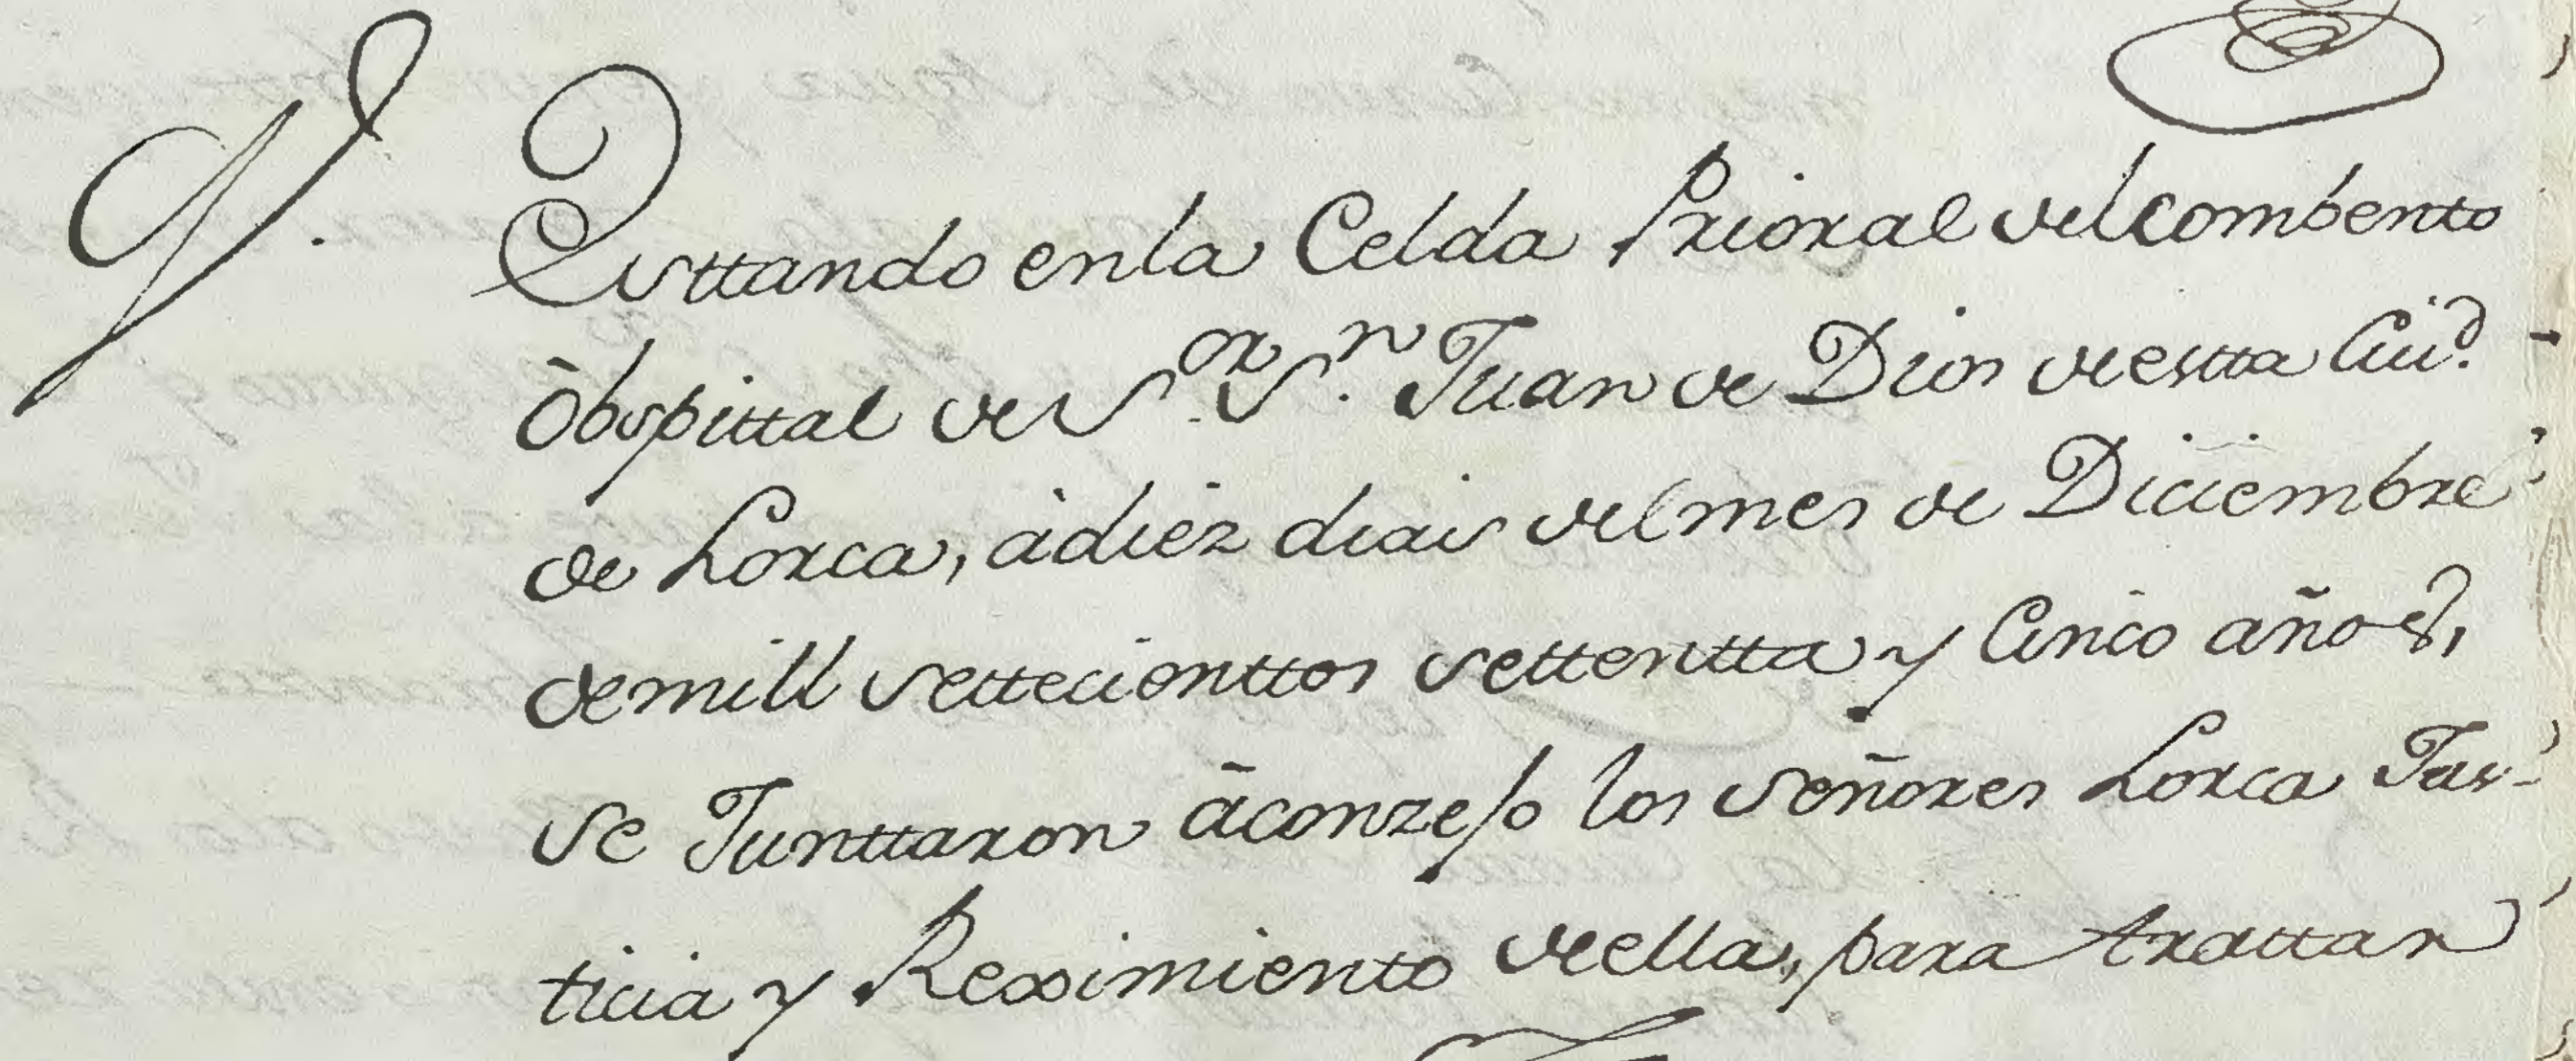 Esttando enla Celda Prioral delcombento
õbspittal de S.or S.n Juan de Dios deestta Ciud.
de Lorca, àdiez diais delmes de Diciembre
demill settecienttos settentta y Cinco años,
se Junttaron ãconzejo los señores Lorca Jus-
ticia y Reximiento deella, para trattar